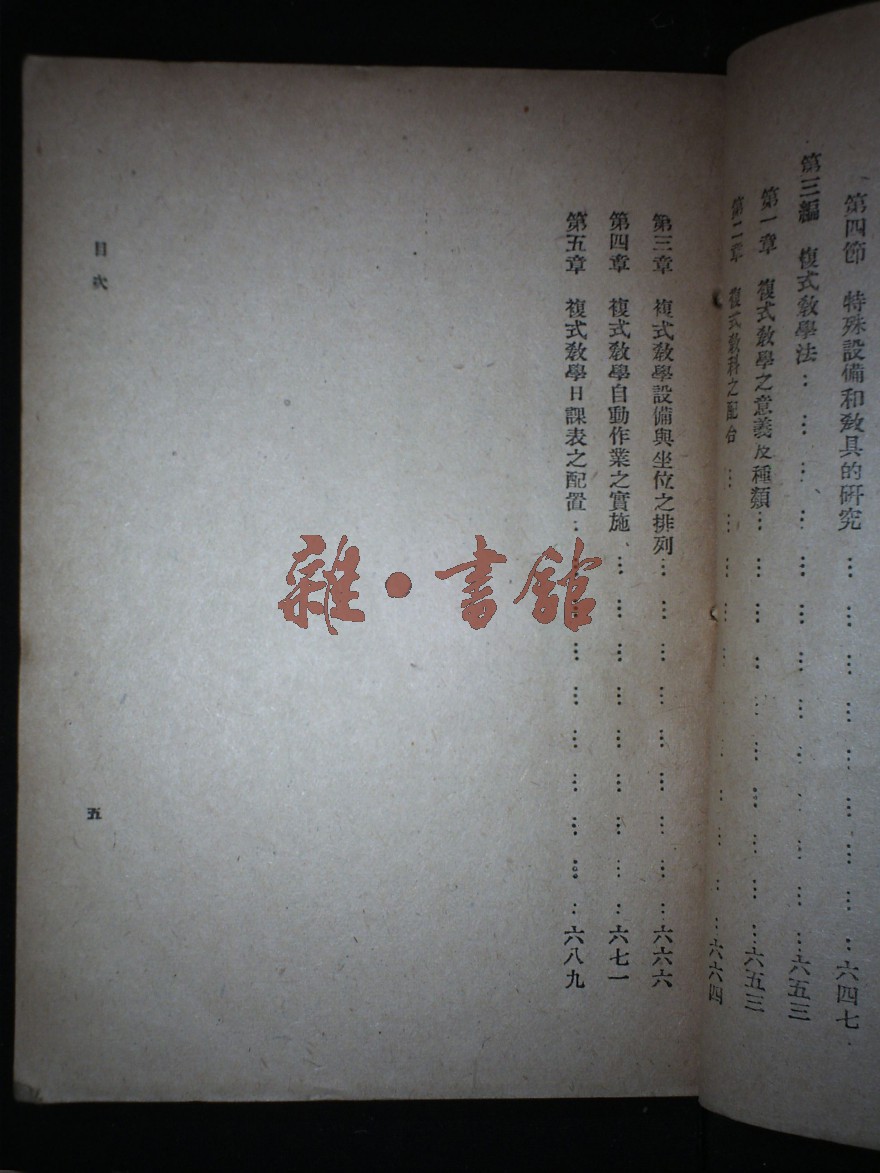 第四節 特殊設備和敎具的硏究………………………六四七
第三編 複式敎學法………………………六五三
第一章 複式敎學之意義及種類………………………六五三
第二章 複式敎科之配合………………………六六四
第三章 複式敎學設備與坐位之排列………………………六六六
第四章 複式敎學自動作業之實施………………………六七一
第五章 複式敎學日課表之配置………………………六八九
目次
五
雜·書館